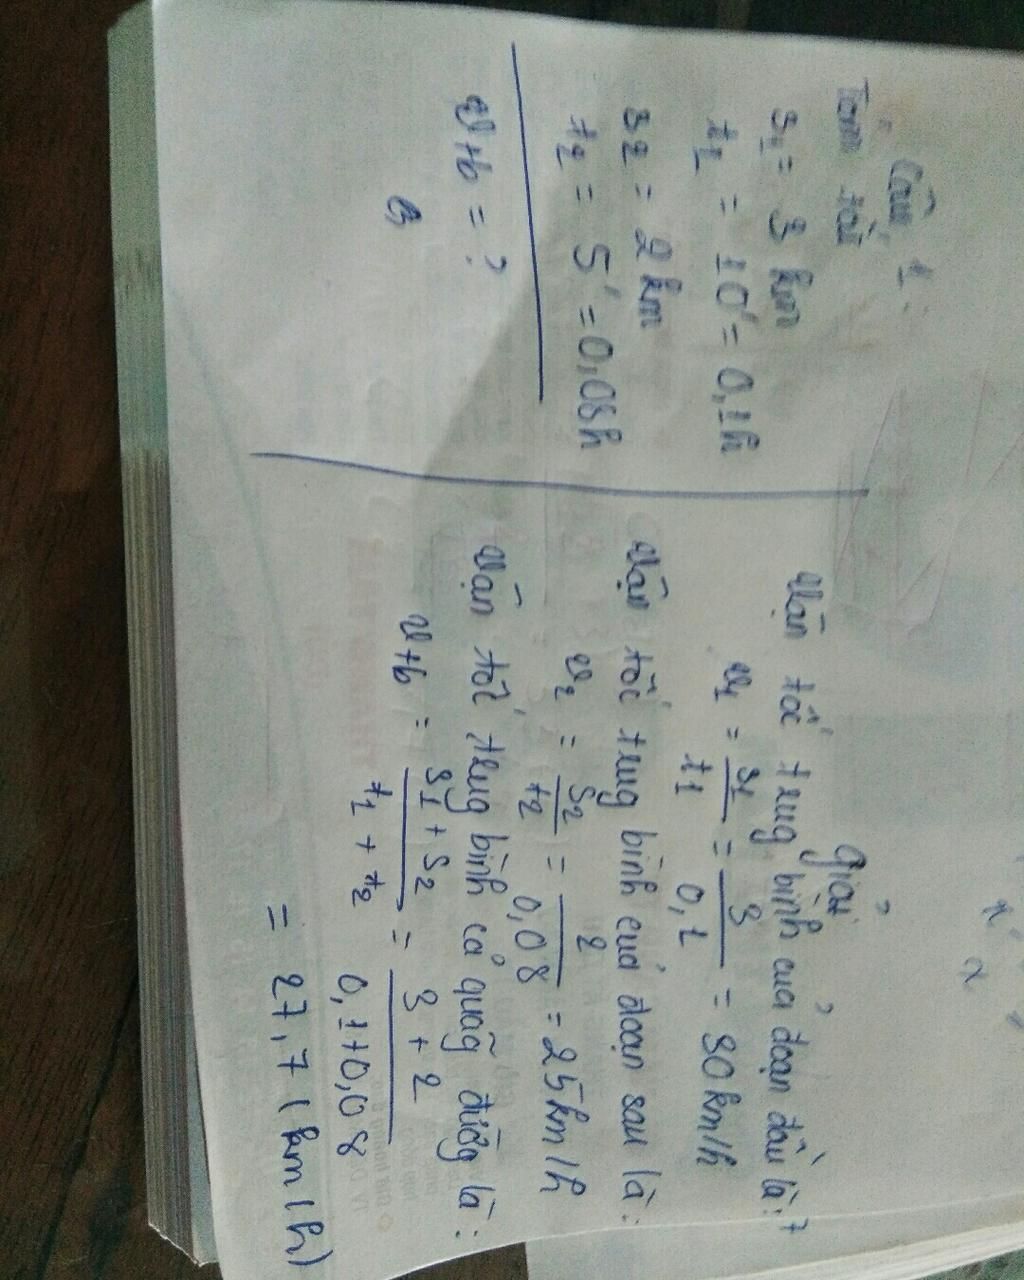 Câu 1:
Tóm tắt
s1 = 3 km
t1 = 10' = 0,1h
s2 = 2 km
t2 = 5' = 0,08h
vtb = ?
Giải
Vận tốc trug bình của đoạn đầu là:
v1 = s1/t1 = 3/0,1 = 30km/h
Vận tốc trug bình của đoạn sau là:
v2 = s2/t2 = 2/0,08 = 25km/h
Vận tốc trug bình cả quãg đườg là:
vtb = (s1 + s2)/(t1 + t2) = (3 + 2)/(0,1+0,08)
= 27,7 (km/h)